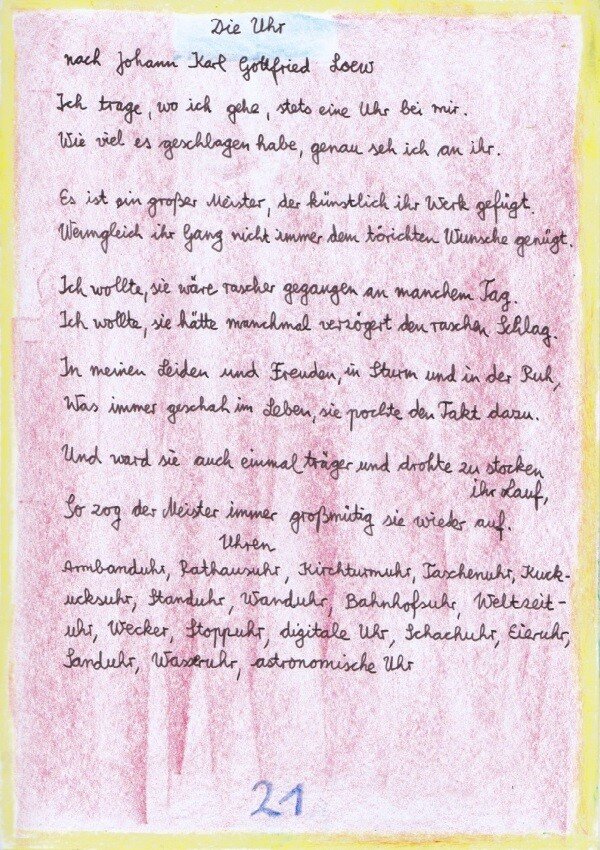 Die Uhr
nach Johann Karl Gottfried Loew
Ich trage, wo ich gehe, stets eine Uhr bei mir.
Wie viel es geschlagen habe, genau seh ich an ihr.
Es ist ein großer Meister, der künstlich ihr Werk gefügt.
Wenngleich ihr Gang nicht immer dem törichten Wunsche genügt.
Ich wollte, sie wäre rascher gegangen an manchem Tag.
Ich wollte, sie hätte manchmal verzögert den raschen Schlag.
In meinen Leiden und Freuden, in Sturm und in der Ruh,
Was immer geschah im Leben, sie pochte den Takt dazu.
Und ward sie auch einmal träger und drohte zu stocken
ihr Lauf,
So zog der Meister immer großmütig sie wieder auf.
Uhren
Armbanduhr, Rathausuhr, Kirchturmuhr, Taschenuhr, Kuck-
ucksuhr, Standuhr, Wanduhr, Bahnhofsuhr, Weltzeit-
uhr, Wecker, Stoppuhr, digitale Uhr, Schachuhr, Eieruhr,
Sanduhr, Wasseruhr, astronomische Uhr
21